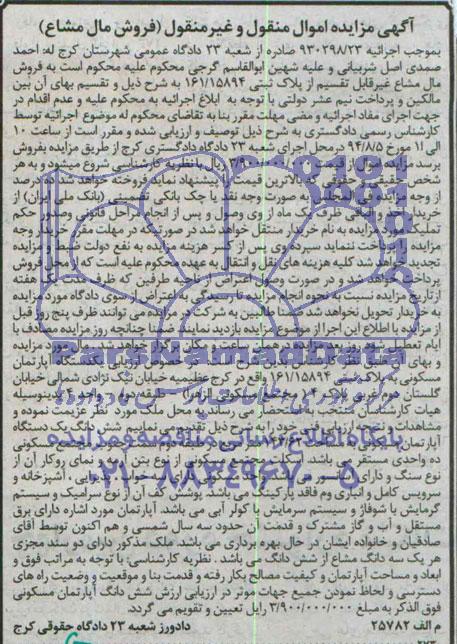 آگهی مزایده اموال منقول و غیرمنقول (فروش مال مشاع)
بموجب اجرائیه ۹۳۰۲۹۸/۲۳ صادره از شعبه ۲۳ دادگاه عمومی شهرستان کرج له: احمد
صمدی اصل شربیانی و علیه شهین ابوالقاسم گرجی محکوم علیه محکوم است به فروش
مال مشاع غیرقابل تقسیم از پلاک ثبتی ۱۶۱/۱۵۸۹۴ به شرح ذیل و تقسیم بهای آن بین
مالکین و پرداخت نیم عشر دولتی با توجه به ابلاغ اجرائیه به محکوم علیه و عدم اقدام در
جهت اجرای مفاد اجرائیه و مضی مهلت مقرر بنا به تقاضای محکوم له موضوع اجرائیه توسط
کارشناس رسمی دادگستری به شرح ذیل توصیف و ارزیابی شده و مقرر است از ساعت ۱۰
الی ۱۱ مورخ ۹۴/۸/۵ در محل اجرای شعبه ۲۳ دادگاه دادگستری کرج از طریق مزایده بفروش
برسد مزایده ریال با نظریه کارشناسی شروع میشود و به هر
شخص بالاترین قیمت را پیشنهاد نماید فروخته خواهد شد ده درصد
از وجه به صورت وجه نقد یا چک بانکی (بانک ملی ایران) از
خریدار ظرف یک ماه از وی وصول و پس از انجام مراحل قانونی وصدور حکم
تملیک مورد مزایده به نام خریدار منتقل خواهد شد در صورتیکه در مهلت مقرر خریدار وجه
مزایده را پرداخت ننماید سپرده وی پس از کسر هزینه مزایده به نفع دولت ضبط و مزایده
تجدید خواهد شد کلیه هزینه های نقل و انتقال به عهده محکوم علیه است که از محل فروش
پرداخت خواهد شد و در صورت وصول اعتراض از ناحیه طرفین که ظرف مدت یک هفته
از تاریخ مزایده نسبت به نحوه انجام مزایده تا رسیدگی به اعتراض از سوی دادگاه مورد مزایده
به خریدار تحویل نخواهد شد ضمنا طالبین به شرکت در مزایده می توانند ظرف پنج روز قبل
از مزایده با اطلاع این اجرا از موضوع مزایده بازدید نمایند ضمنا چنانچه روز مزایده مصادف با
ایام تعطیل شود روز بعد مزایده در همین ساعت و مکان برگزار خواهد شد مال مورد مزایده
و بهای آن طبق نظر کارشناس بدین شرح است: در خصوص ارزیابی ششدانگ آپارتمان
مسکونی به پلاک ثبتی ۱۶۱/۱۵۸۹۴ واقع در کرج عظیمیه خیابان نیک نژادی شمالی خیابان
گلستان
هیات کارشناسان منتخب به استحضار می رساند به محل ملک مورد نظر عزیمت نموده و
مشاهدات و نتیجه ارزیابی فنی خود را به شرح ذیل تقدیم می نماییم شش دانگ یک دستگاه
آپارتمان مسکونی
ده واحدی مستقر می باشد. اسکلت مجتمع مسکونی از نوع بتن آرمه و نمای روکار آن از
نوع سنگ و دارای آسانسور
سرویس کامل و انباری وم فاقد پارکینگ می باشد. پوشش کف آن از نوع سرامیک و سیستم
گرمایش با شوفاژ و سیستم سرمایش با کولر آبی می باشد. آپارتمان مورد اشاره دارای برق
مستقل و آب و گاز مشترک و قدمت آن حدود سه سال شمسی و هم اکنون توسط آقای
صادقیان و خانواده ایشان در حال بهره برداری می باشد. ملک مذکور دارای دو سند مجزی
هر یک سه دانگ مشاع از شش دانگ می باشد. نظریه کارشناسی: با توجه به مراتب فوق و
ابعاد و مساحت آپارتمان و کیفیت مصالح بکار رفته و قدمت بنا و موقعیت و وضعیت راه های
دسترسی و لحاظ نمودن جمیع جهات موثر در ارزیابی ارزش شش دانگ آپارتمان مسکونی
فوق الذکر به مبلغ ۳/۹۰۰/۰۰۰/۰۰۰ ریال تعیین و تقویم می گردد.
م الف ۲۵۷۸۲ دادورز شعبه ۲۳ دادگاه حقوقی کرج
ParsNamadData
پایگاه اطلاع رسانی مناقصه و مزایده
۰۲۱-۸۸۳۴۹۶۷۰-۵